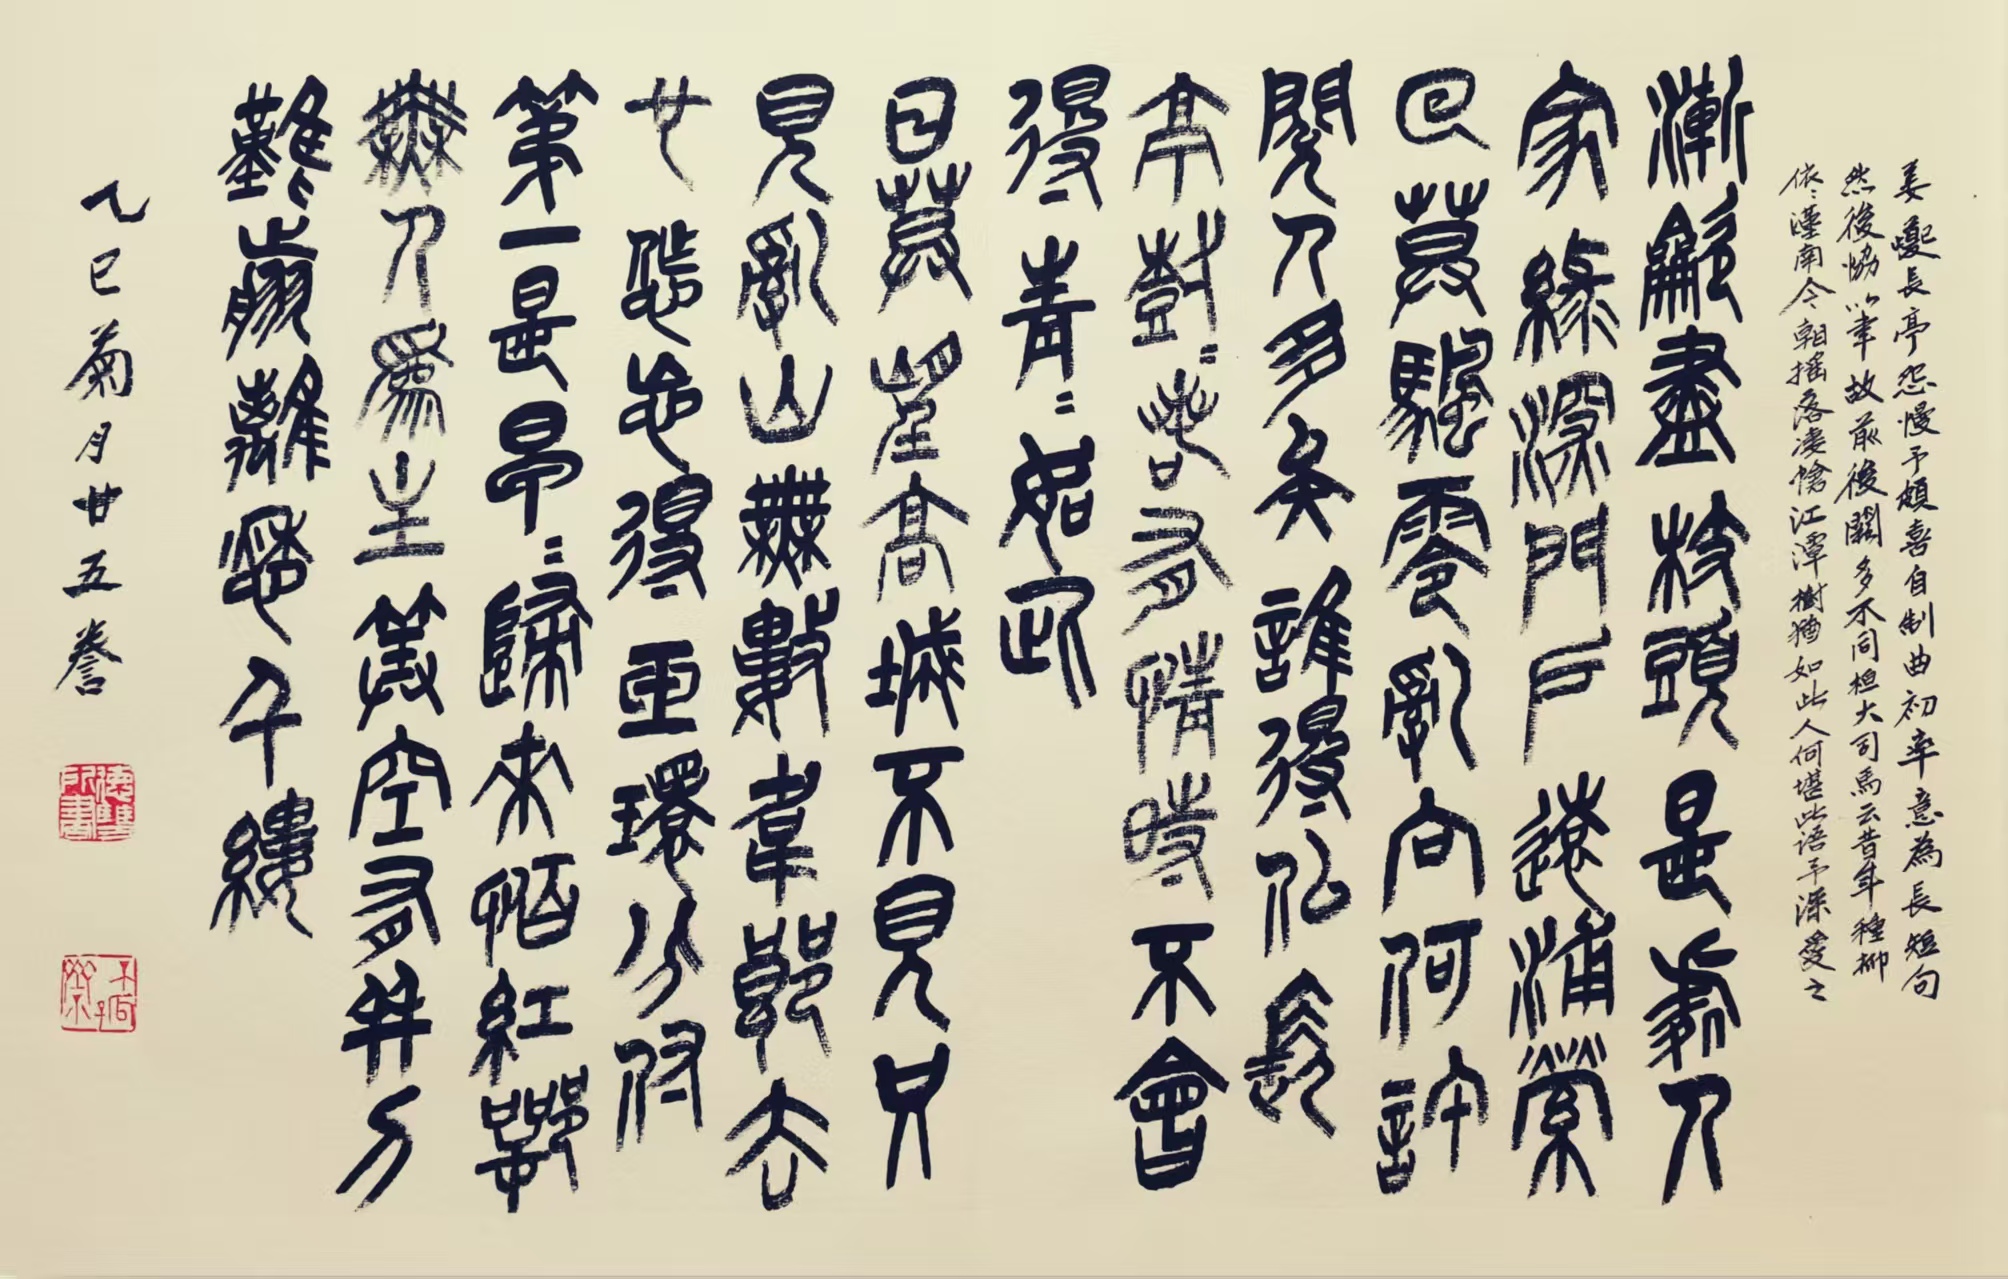 姜夔長亭怨慢予頗喜自制曲初率意為長短句
然後協以聿故前後闋多不同桓大司馬云昔年種柳
依〻漢南今朝搖落淒愴江潭樹猶如此人何堪此語予深愛之
漸龡盡枝頭是處人
家綠深門戶遠浦縈
回暮颿零亂向何許
閱人多矣誰得似長
亭樹〻若有情時不會
得青〻如此
日暮望高城不見只
見亂山無數韋郎去
也怎忘得玉環分付
第一是早〻歸來怕紅萼
無人為主算空有并刀
難翦離愁千縷
乙巳菊月廿五誊